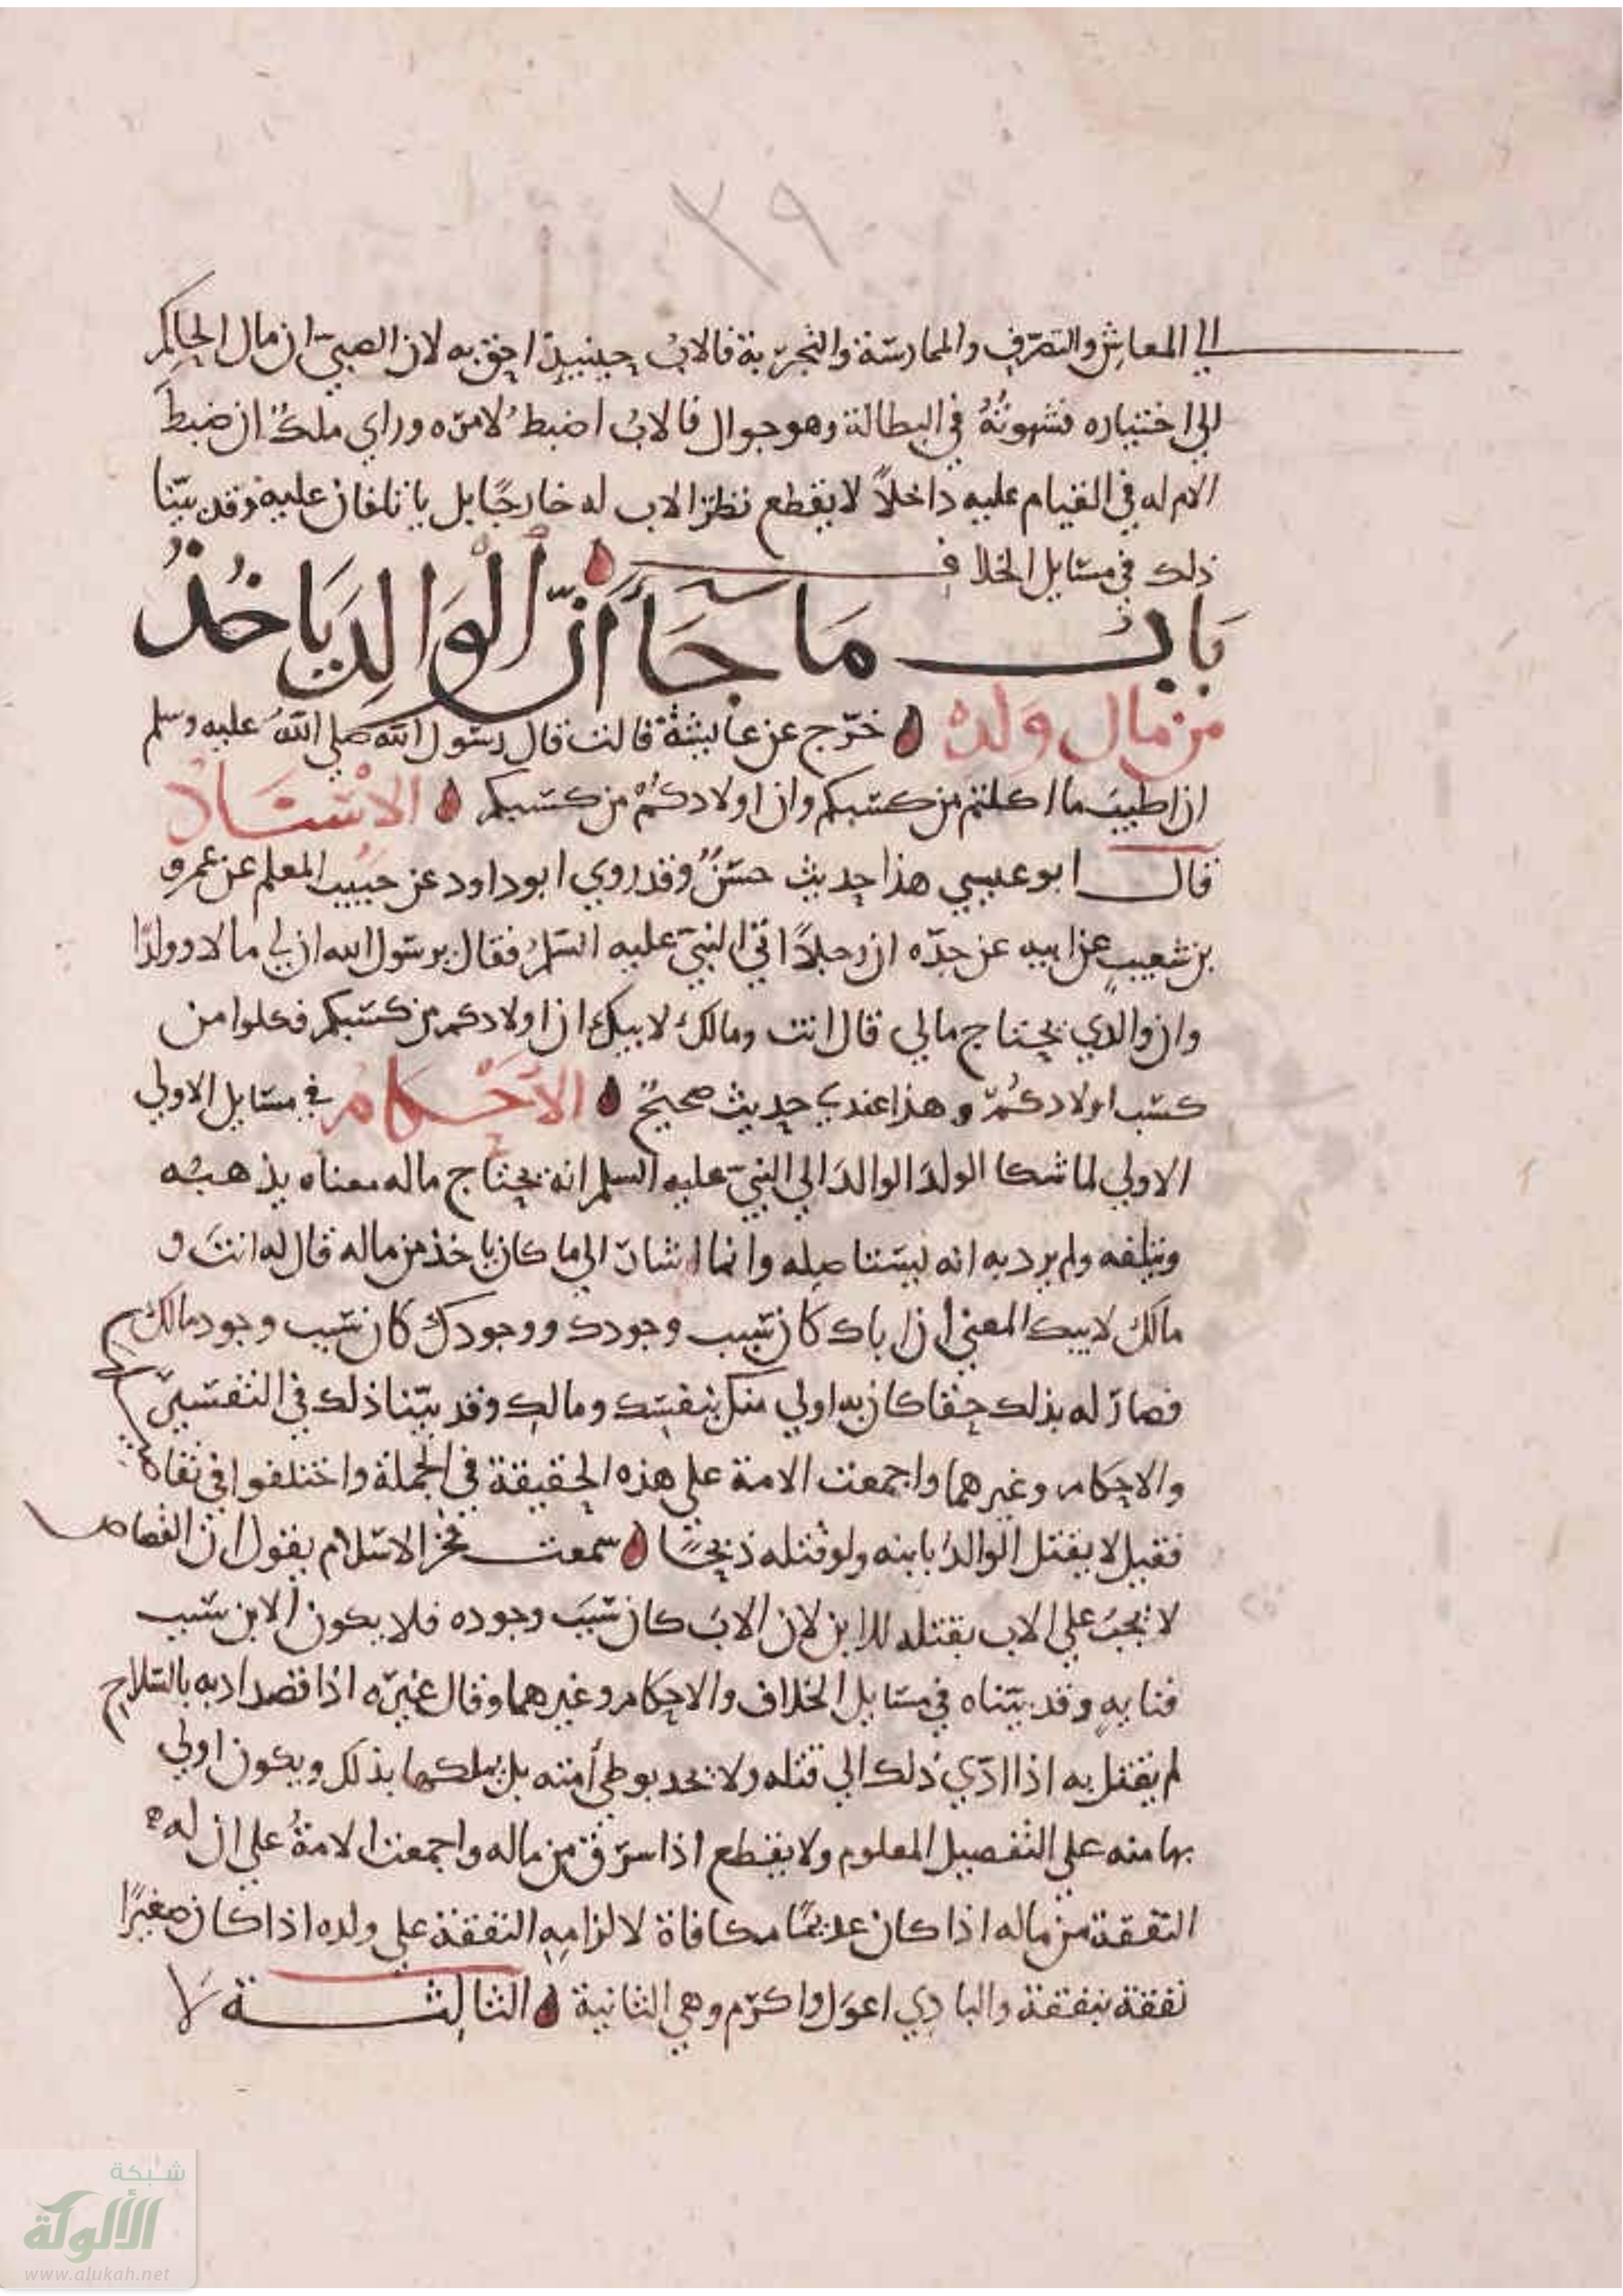 ٣٩
الي المعاش والتصرف والممارسة والتجربة فالاب حينيذ احق به لان الصبي ان مال الحاكم
الي اختياره فشهوته في البطالة وهو جوال فالاب اضبط لامره وراي ملك ان ضبط
الام له في القيام عليه داخلاً لا يقطع نظر الاب له خارجًا بل ياتلفان عليه وقد بيّنا
ذلك في مسايل الخلاف
بَابُ مَا جَآءَ أنّ الْوَالِدَ يَاخُذُ
من مال وَلده خرّج عن عايشة قالت قال رسول الله صلي الله عليه وسلم
ان اطيب ما اكلتم من كسبكم وان اولادكُمْ من كسبكم الاسْنَادُ
قال ابو عيسي هذا حديث حسنٌ وقد روي ابو داود عن حبيب المعلم عن عمرو
بن شعيبٍ عن ابيه عن جدّه ان رجلاً اتي النبيّ عليه السلم فقال يرسول الله ان لي مالا وولدًا
وان والدي يجتاج مالي قال انت ومالك لابيك ان اولادكم من كسبكم فكلوا من
كسب اولادكُمْ وهذا عندي حديث صحيحٌ الأحْكَامُ في مسايل الاولي
الاولي لما شكا الولدَ الوالدَ الي النبيّ عليه السلم انه يجتاج ماله معناه يذهبُه
ويتلفه ولم يرد به انه يستاصله وانما اشار الي ما كان ياخذ من ماله قال له انتَ و
مالك لابيك المعني ان اباك كان سبب وجودك ووجودك كان سبب وجود مالك
فصار له بذلك حقا كان به اولي منك بنفسك ومالك وقد بيّنا ذلك في التفسير
والاحكام وغيرهما واجمعت الامة علي هذه الحقيقة في الجملة واختلفوا في
فقيل لا يقتل الوالدُ بابنه ولو قتله ذبحًا سمعت فخر الاسلام يقول ان القصاص
لا يجبُ علي الاب بقتله للابن لان الابَ كان سببَ وجوده فلا يكون الابن سبب
فنايه وقد بيّناه في مسايل الخلاف والاحكام وغيرهما وقال غيره اذا قصد ادبه بالسلاح
لم يقتل به اذا ادّي ذلك الي قتله ولا يحد بوطي أمته بل يملكها بذلك ويكون اولي
بها منه علي التفصيل المعلوم ولا يقطع اذا سرق من ماله واجمعت الامةُ علي ان له
النفقة من ماله اذا كان عديمًا مكافاة لالزامِهِ النفقة علي ولده اذا كان صغيرًا
نفقة بنفقة والبادِي اعوَل واكرم وهي الثانية الثالِثَة لَا
شبكة
الألوكة
www.alukah.net